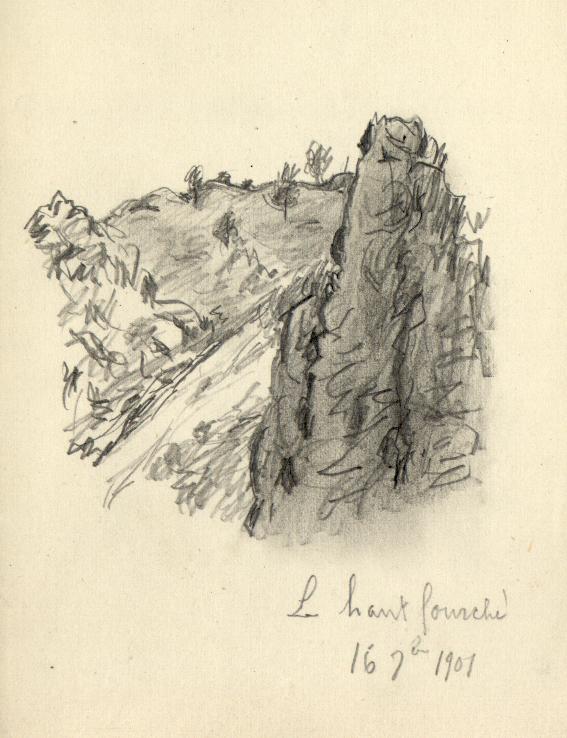 Le haut fourché
16 7bre 1901